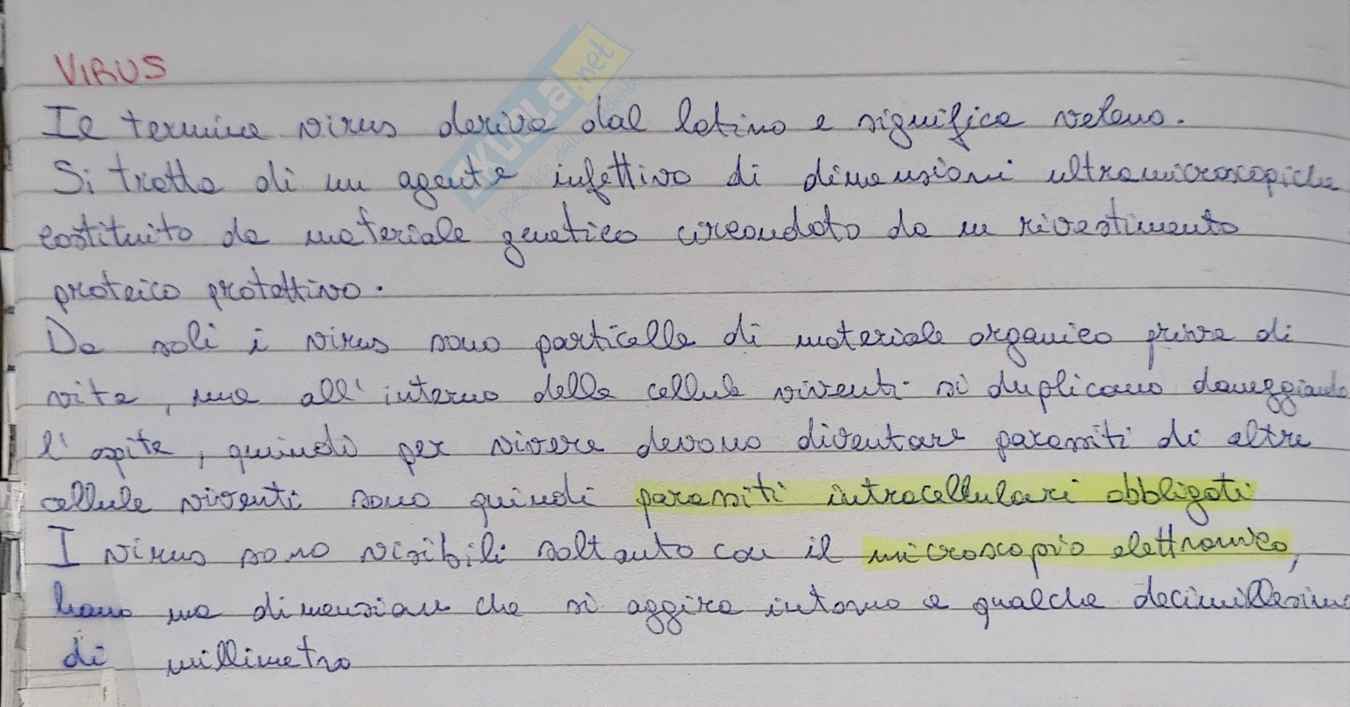 VIRUS
Il termine virus deriva dal latino e significa veleno.
Si tratta di un agente infettivo di dimensioni ultramicroscopiche
costituito da materiale genetico circondato da un rivestimento
proteico protettivo.
Da soli i virus sono particelle di materiale organico prive di
vita, ma all'interno delle cellule viventi si duplicano danneggiando
l'ospite, quindi per vivere devono diventare parassiti di altre
cellule viventi sono quindi parassiti intracellulari obbligati
I virus sono visibili soltanto con il microscopio elettronico,
hanno una dimensione che si aggira intorno a qualche decimillesimo
di millimetro
SKUOLA.net